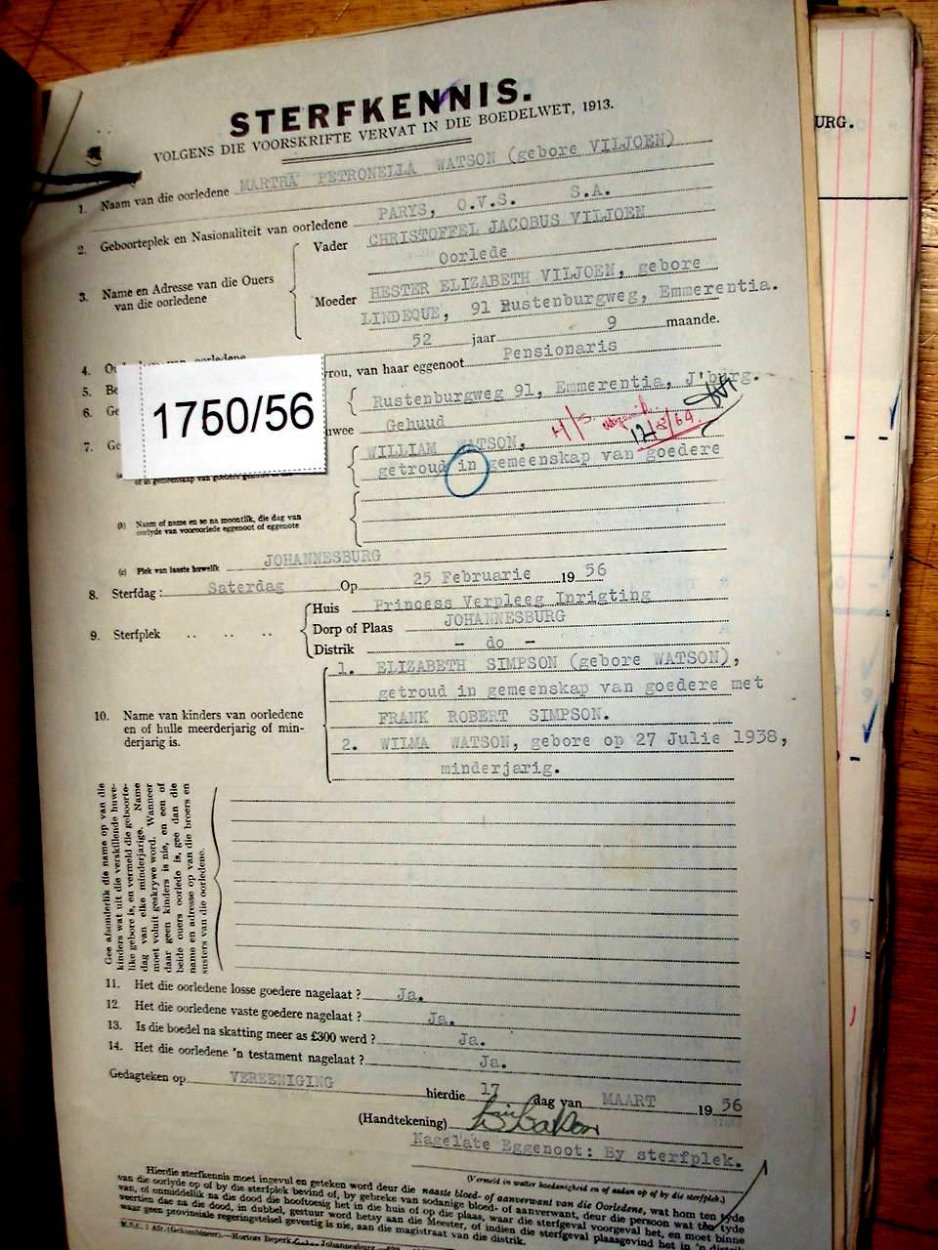 STERFKENNIS.
VOLGENS DIE VOORSKRIFTE VERVAT IN DIE BOEDELWET, 1913.
URG.
1. Naam van die oorledene MARTHA PETRONELLA WATSON (gebore VILJOEN)
2. Geboorteplek en Nasionaliteit van oorledene PARYS, O.V.S. S.A.
3. Name en Adresse van die Ouers van die oorledene
Vader CHRISTOFFEL JACOBUS VILJOEN
Oorlede
Moeder HESTER ELIZABETH VILJOEN, gebore
LINDEQUE, 91 Rustenburgweg, Emmerentia.
4. 52 jaar 9 maande.
5. Be rou, van haar eggenoot Pensionaris
6. Ge Rustenburgweg 91, Emmerentia, J'burg.
1750/56
7. Ge uwee Gehuud
H/S 12/8/64
WILLIAM WATSON,
getroud in gemeenskap van goedere
(b) Naam of name en so na moontlik, die dag van
oorlyde van vooroorlede eggenoot of eggenote
(c) Plek van laaste huwelik JOHANNESBURG
8. Sterfdag: Saterdag Op 25 Februarie 1956
9. Sterfplek .. .. .. Huis Princess Verpleeg Inrigting
Dorp of Plaas JOHANNESBURG
Distrik - do -
10. Name van kinders van oorledene
en of hulle meerderjarig of min-
derjarig is.
1. ELIZABETH SIMPSON (gebore WATSON),
getroud in gemeenskap van goedere met
FRANK ROBERT SIMPSON.
2. WILMA WATSON, gebore op 27 Julie 1938,
minderjarig.
Gee afsonderlik die name op van die
kinders wat uit die verskillende huwe-
like gebore is, en vermeld die geboorte-
dag van elke minderjarige. Name
moet voluit geskrywe word. Wanneer
daar geen kinders is nie, en een of
beide ouers oorlede is, gee dan die
name en adresse op van die broers en
susters van die oorledene.
11. Het die oorledene losse goedere nagelaat? Ja.
12. Het die oorledene vaste goedere nagelaat? Ja.
13. Is die boedel na skatting meer as £300 werd? Ja.
14. Het die oorledene 'n testament nagelaat? Ja.
Gedagteken op VEREENIGING hierdie 17 dag van MAART 1956
(Handtekening)
Nagelate Eggenoot: By sterfplek.
(Vermeld in watter hoedanigheid en of aldan op of by die sterfplek.)
Hierdie sterfkennis moet ingevul en geteken word deur die naaste bloed- of aanverwant van die Oorledene, wat hom ten tyde
van die oorlyde op of by die sterfplek bevind of, by gebreke van sodanige bloed- of aanverwant, deur die persoon wat ten tyde
van, of onmiddelik na die dood die hooftoesig het in die huis of op die plaas, waar die sterfgeval voorgeval het, en moet binne
veertien dae na die dood, in dubbel, gestuur word hetsy aan die Meester, of indien die sterfgeval plaasgevind het in 'n
waar geen provinsiale regeringstelsel gevestig is nie, aan die magistraat van die distrik.